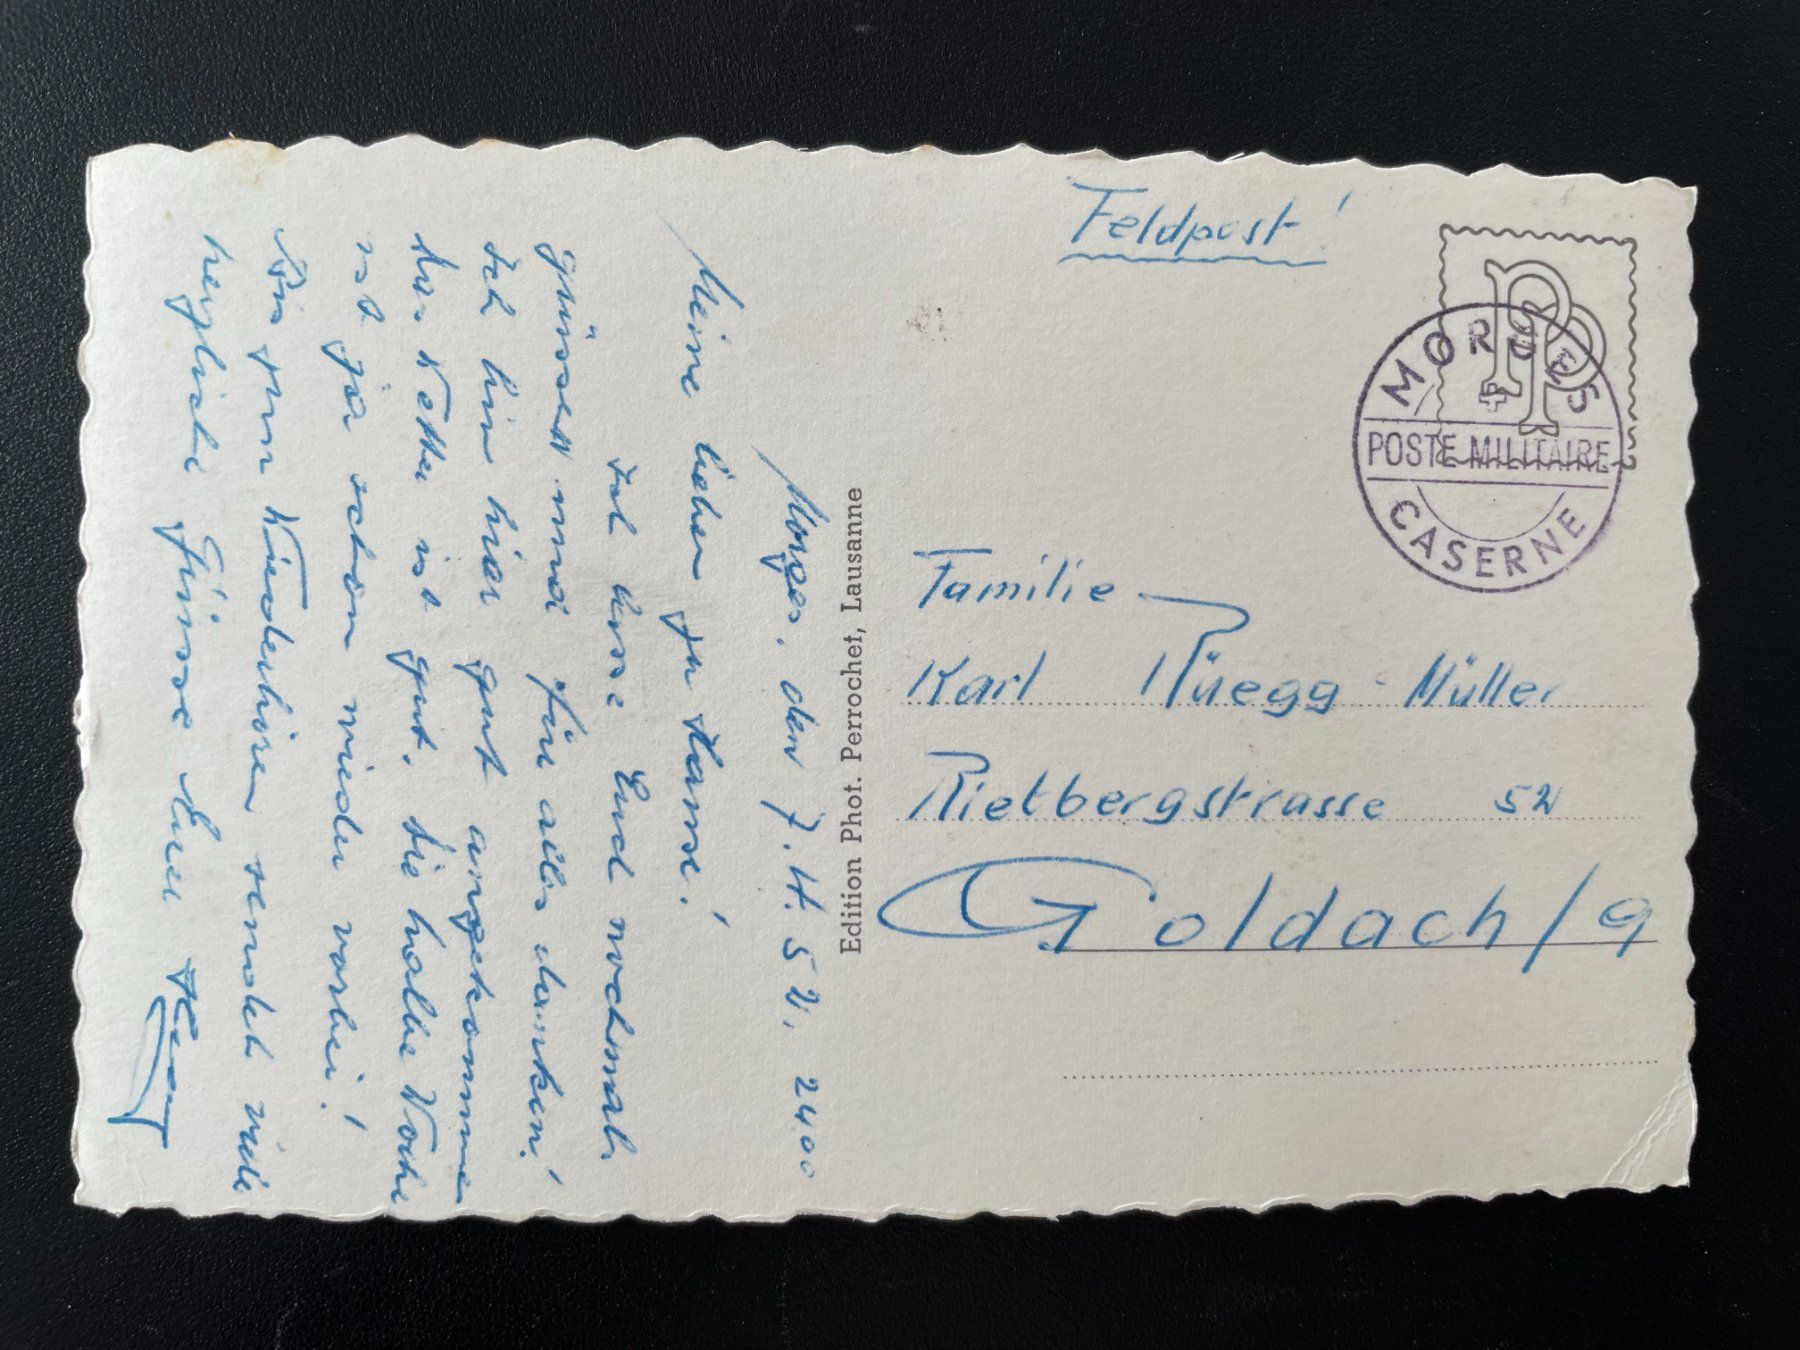 Morges, den 7. 4. 52. 2400
Meine lieben zu Hause!
Ich lasse Euch nochmals
grüssen und für alles danken!
Ich bin hier gut angekommen
das Wetter ist gut. Die halbe Woche
ist ja schon wieder vorbei!
zum sendet viele
herzliche Grüsse Euer
Edition Phot. Perrochet, Lausanne
Feldpost!
PP
MORGES
POSTE MILITAIRE
CASERNE
Familie
Karl Rüegg-Müller
Rietbergstrasse 52
Goldach/G